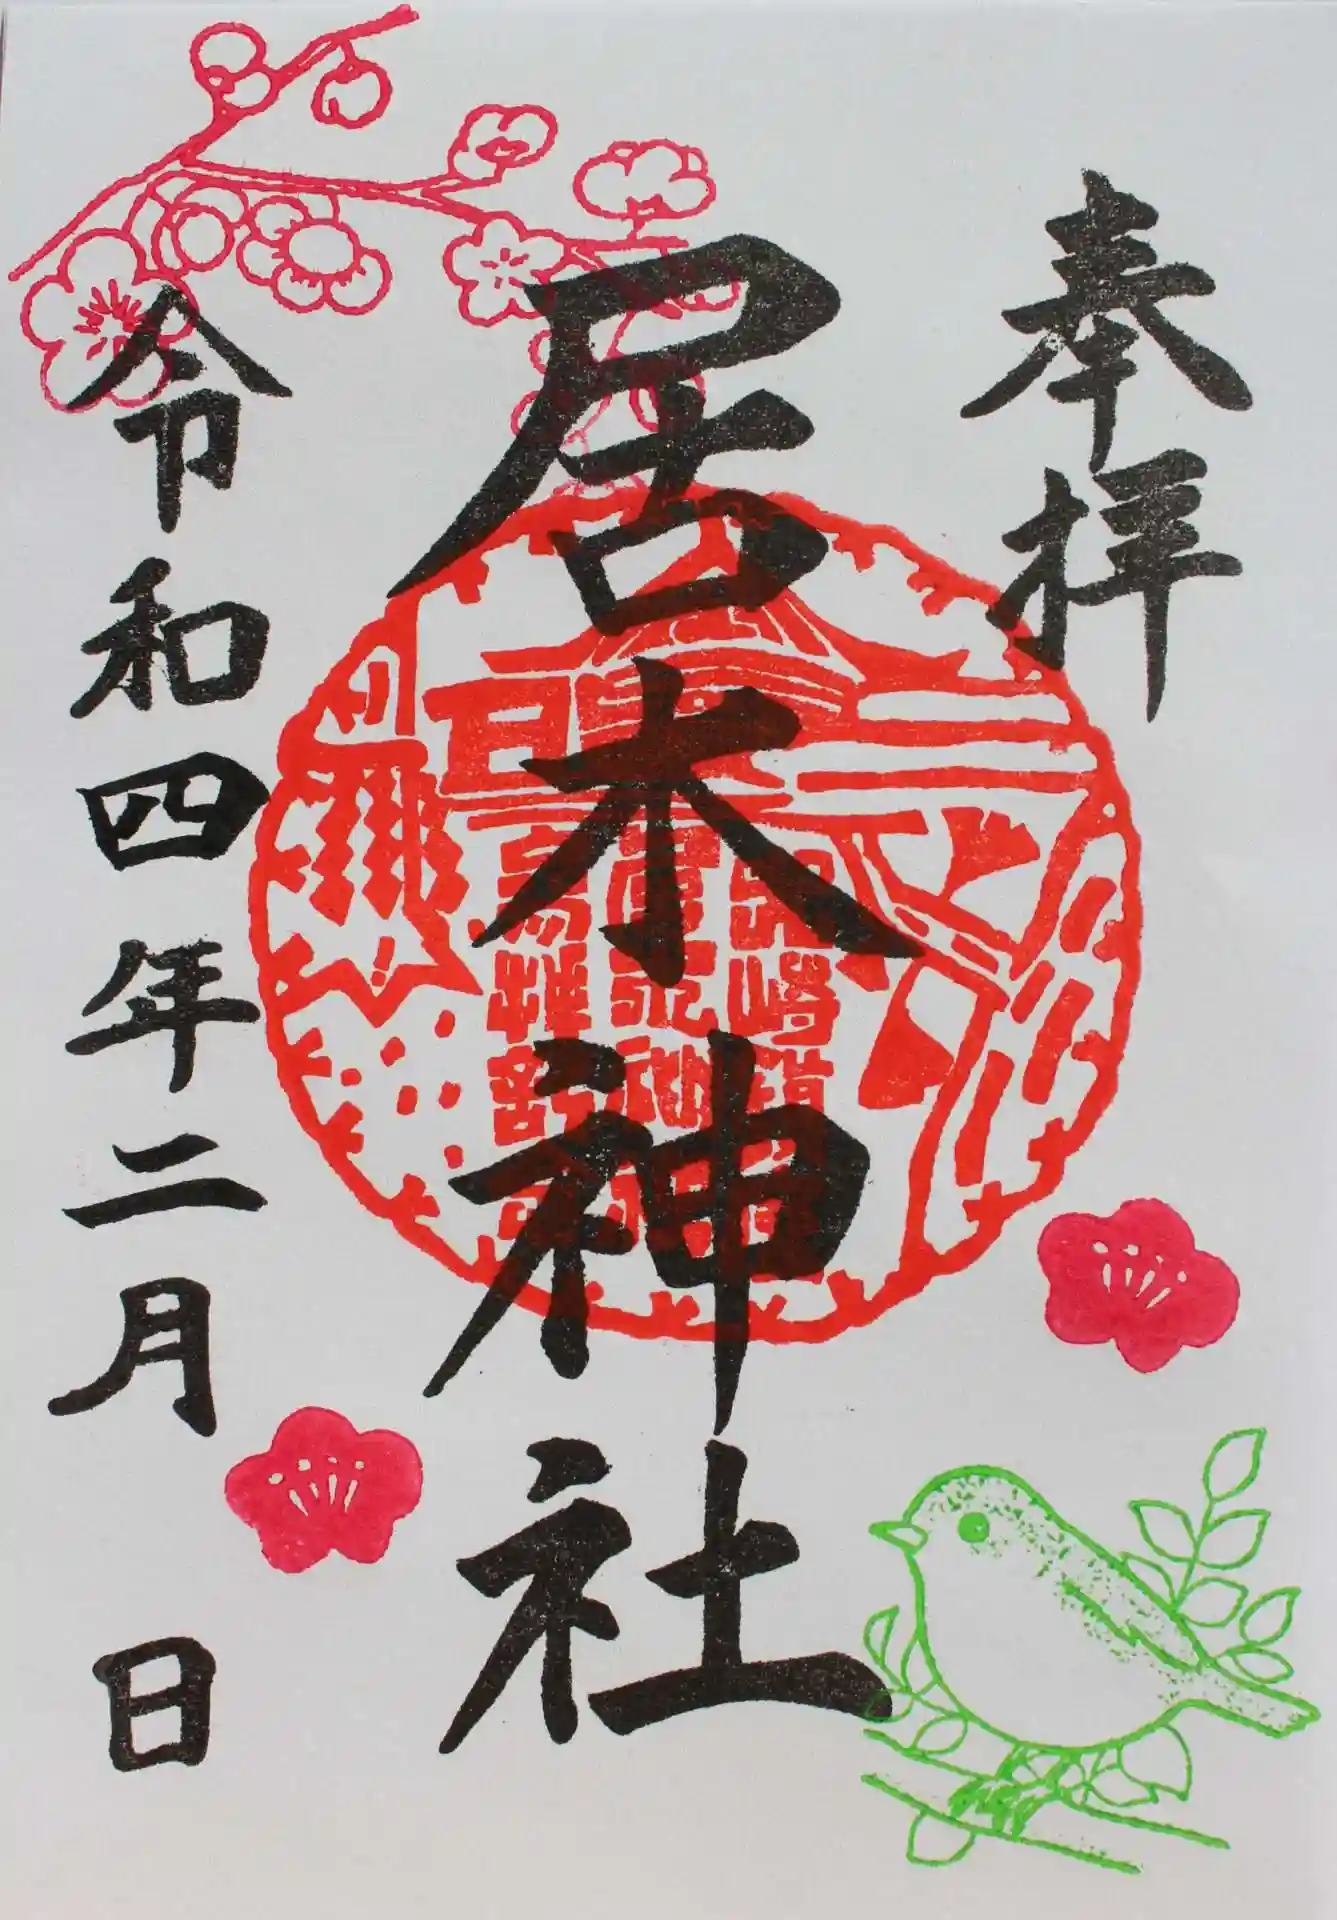 奉拝
居木神社
令和四年二月　日